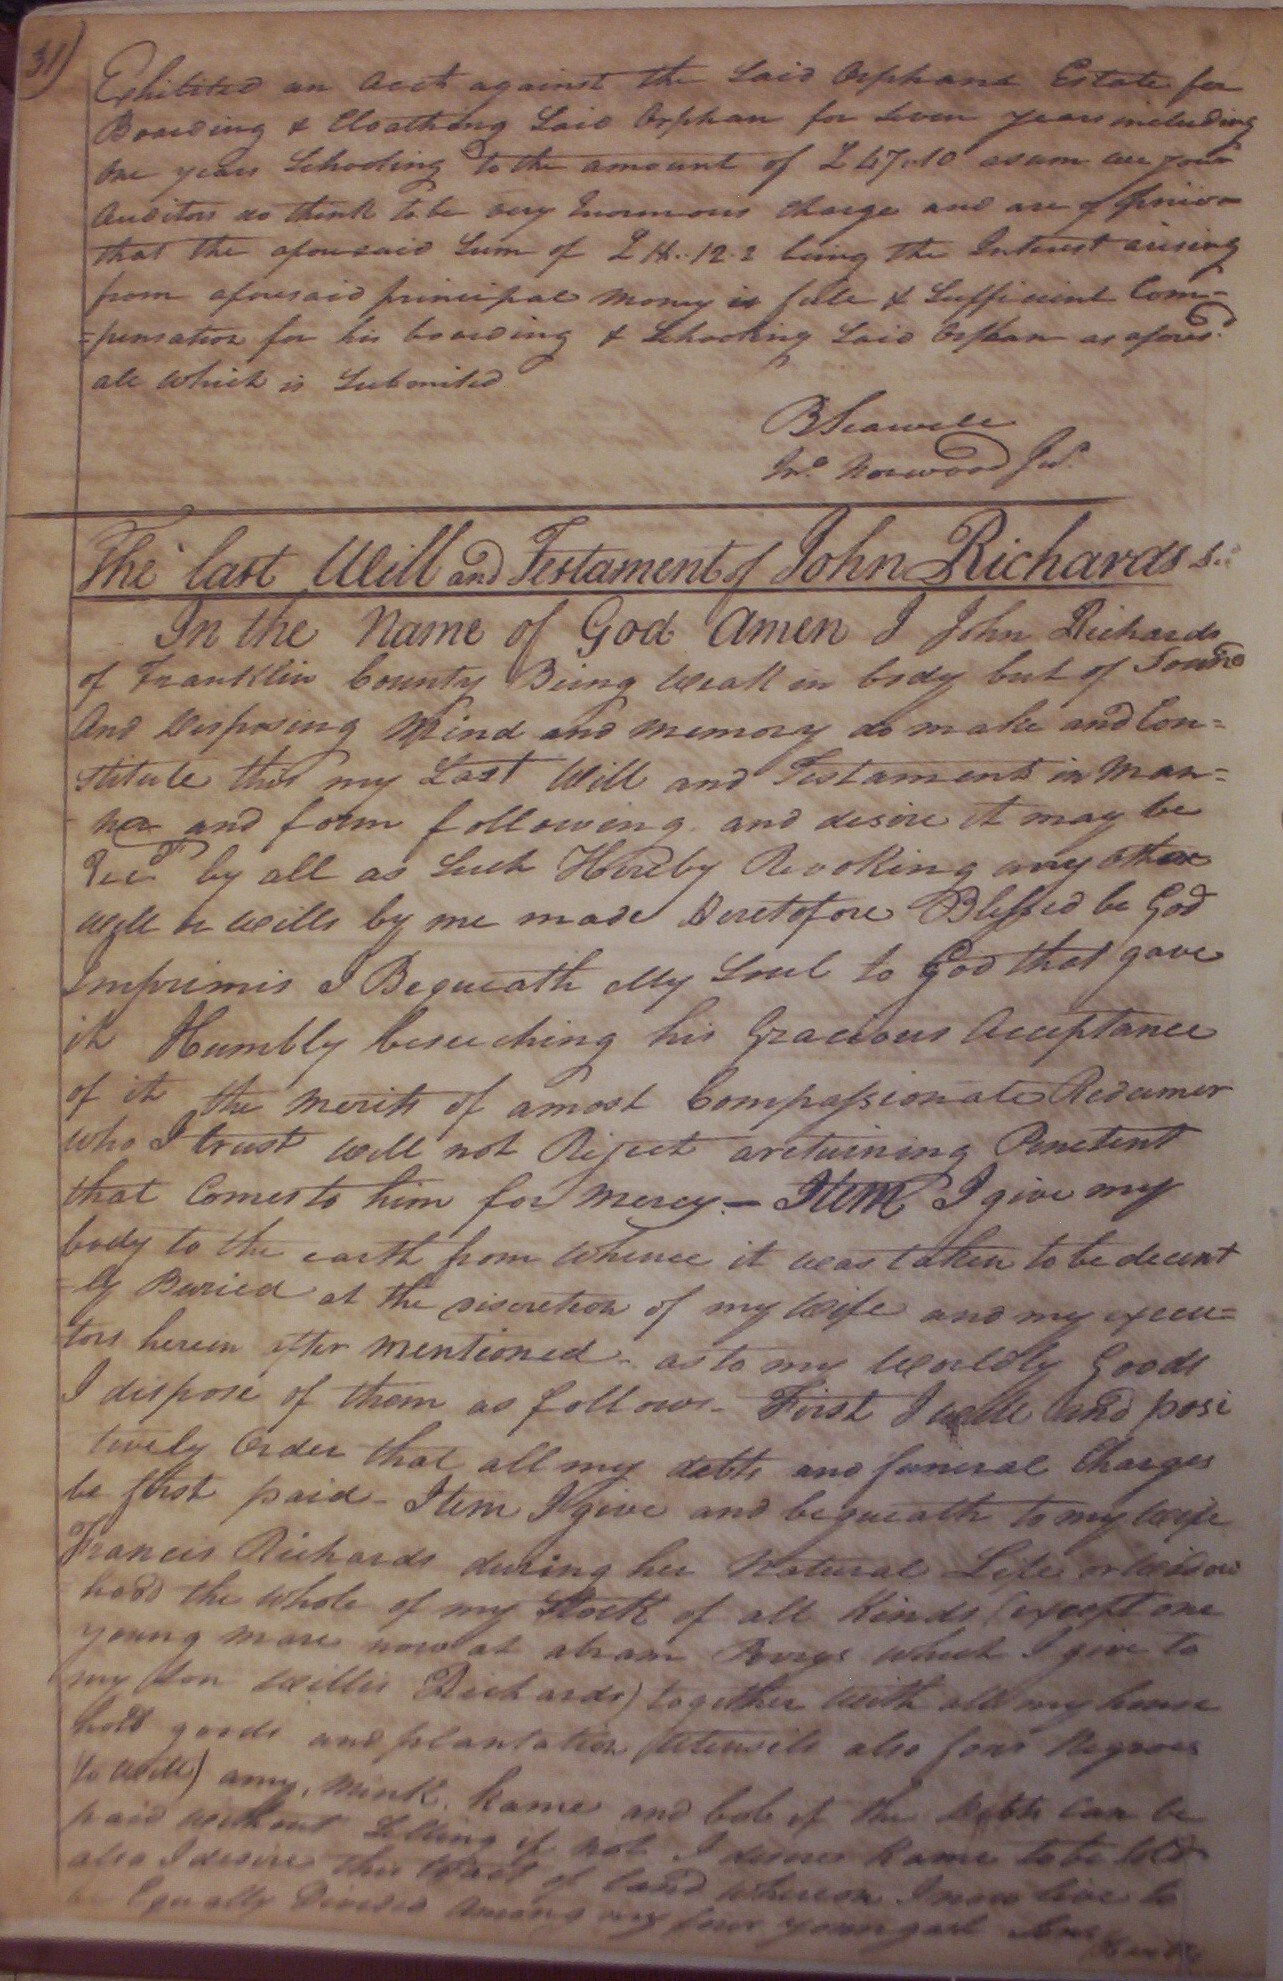 31)
Exhibited an Acct against the Said Orphans Estate for
Boarding & Cloathing Said Orphan for Seven years including
one years Schooling to the amount of £47.10 a sum we your
Auditors do think to be very Enormous Charge and are of Opinion
that the aforesaid Sum of 12.2 being the Interest arising
from aforesaid principal money is full & Sufficient Com=
=pensation for his boarding & Schooling Said Orphan as afores.d
all which is Submited
B Seawell
Jno. Norwood Jur.
The last Will and Testament of John Richards
In the Name of God Amen I John Richards
of Franklin County Being Weak in body but of Sound
And Disposing Mind and Memory do make and Con=
stitute this my Last Will and Testament in Man=
ner and form following and desire it may be
Rec.d by all as Such Hereby Revoking any other
will or wills by me made Heretofore Blessed be God
Imprimis I Bequeath My Soul to God that gave
it Humbly beseeching his Gracious Acceptance
of it the Merits of a most Compassionate Redeemer
who I trust will not Reject a returning Penetent
that Comes to him for Mercy – Item I give my
body to the earth from Whence it was taken to be decent
=ly Buried at the discretion of my Wife and my execu=
tors herein after mentioned - as to my Worldly Goods
I dispose of them as follows - First I will and posi
tively Order that all my debts and funeral Charges
be first paid - Item I give and bequeath to my Wife
Francis Richards during her Natural Life or Widow
hood the Whole of my Stock of all Kinds (except one
young mare now at abram Perrys which I give to
my Son Willis Richards) together with all my house
hold goods and plantation Utensils also four Negroes
(to Will) amy, Mink, Kame and bob if the Debts can be
paid without Selling if not I desire Kame to be Sold
also I desire this tract of land whereon I now live to
be Equally Divided among my four youngest Sons